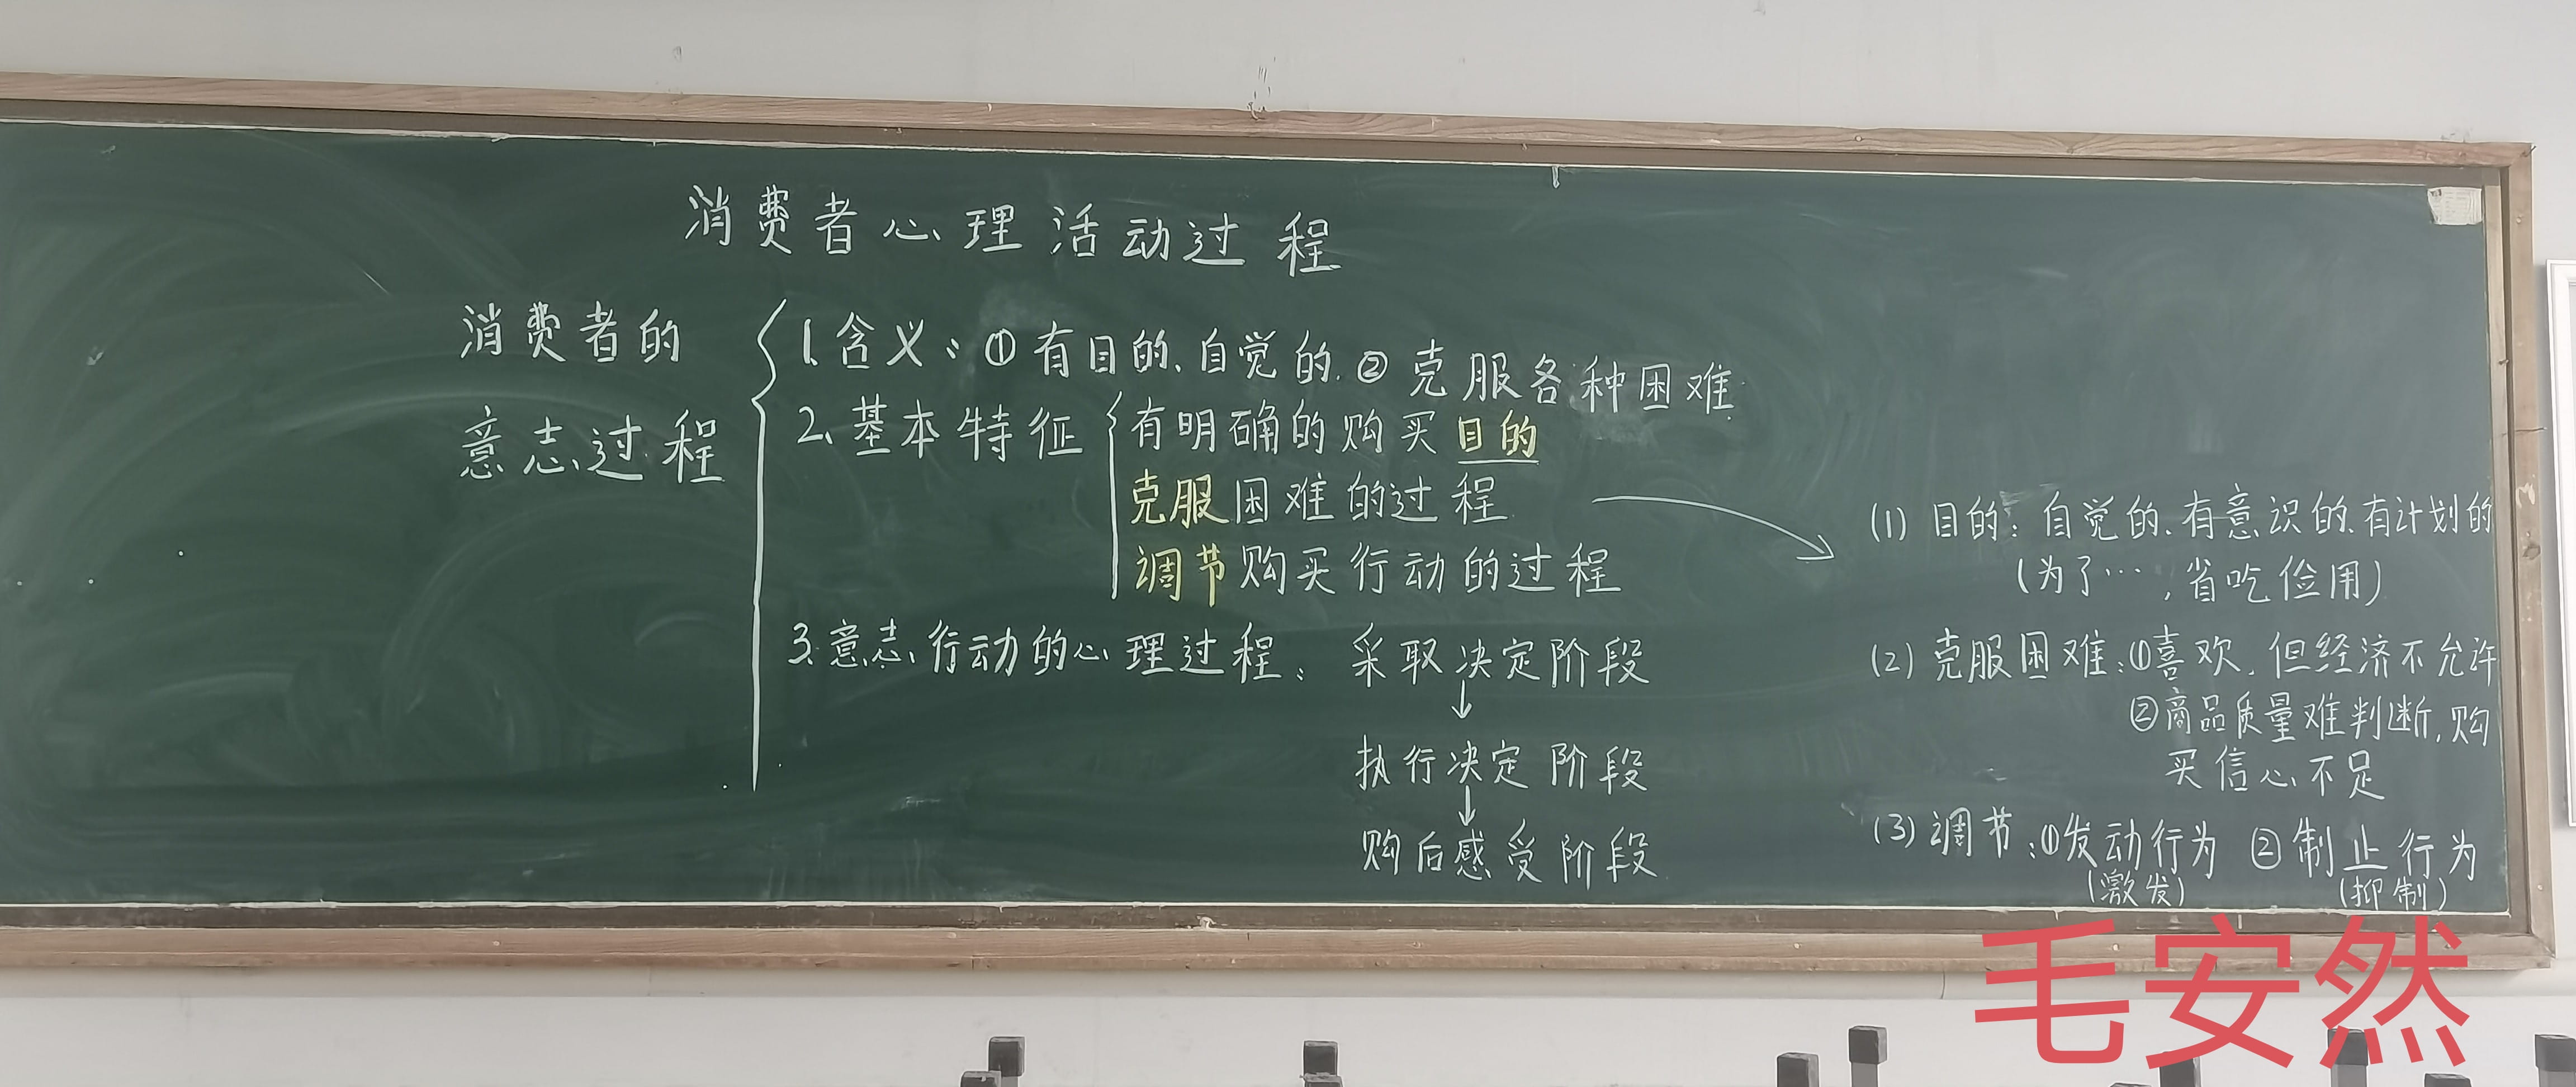 消费者心理活动过程
消费者的
意志过程
1.含义：①有目的、自觉的.②克服各种困难
2、基本特征
有明确的购买目的
克服困难的过程
调节购买行动的过程
3.意志行动的心理过程：采取决定阶段
↓
执行决定阶段
↓
购后感受阶段
(1) 目的：自觉的、有意识的、有计划的
(为了…，省吃俭用)
(2) 克服困难：①喜欢，但经济不允许
②商品质量难判断，购
买信心不足
(3) 调节：①发动行为 ②制止行为
(激发) (抑制)
毛安然